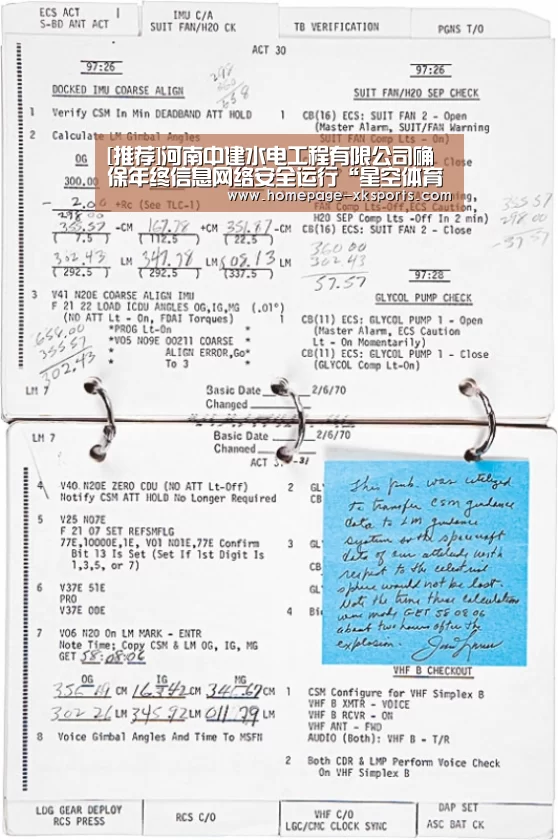 ECS ACT
S-BD ANT ACT
IMU C/A
SUIT FAN/H2O CK
TB VERIFICATION
PGNS T/O
ACT 30
97:26
DOCKED IMU COARSE ALIGN
1 Verify CSM In Min DEADBAND ATT HOLD
2 Calculate LM Gimbal Angles
[推荐]河南中建水电工程有限公司确
保年终信息网络安全运行“星空体育
www.homepage-xksports.com
OG
300.00
- 2.0 +Rc (See TLC-1)
298.00
355.57 -CM 167.78 +CM 351.87 -CM
( 7.5 ) (112.5 ) ( 22.5 )
302.43 LM 347.78 LM 008.13 LM
(292.5 ) (292.5 ) (337.5 )
3 V41 N20E COARSE ALIGN IMU
F 21 22 LOAD ICDU ANGLES OG,IG,MG (.01°)
(NO ATT Lt - On, FDAI Torques)
*PROG Lt-On *
*V05 N09E 00211 COARSE *
* ALIGN ERROR,Go*
* To 3 *
658.00
355.57
302.43
97:26
SUIT FAN/H2O SEP CHECK
1 CB(16) ECS: SUIT FAN 2 - Open
(Master Alarm, SUIT/FAN Warning
SUIT FAN Comp Lts - On)
- Close
FAN Comp Lts-Off,ECS Caution,
H2O SEP Comp Lts -Off In 2 min)
CB(16) ECS: SUIT FAN 2 - Close
355.57
298.00
- 57.57
360.00
302.43
57.57
97:28
GLYCOL PUMP CHECK
1 CB(11) ECS: GLYCOL PUMP 1 - Open
(Master Alarm, ECS Caution
Lt - On Momentarily)
CB(11) ECS: GLYCOL PUMP 1 - Close
(GLYCOL Comp Lt-On)
LM 7
Basic Date 2/6/70
Changed
LM 7
Basic Date 2/6/70
Changed
4 V40 N20E ZERO CDU (NO ATT Lt-Off)
Notify CSM ATT HOLD No Longer Required
5 V25 N07E
F 21 07 SET REFSMFLG
77E,10000E,1E, V01 N01E,77E Confirm
Bit 13 Is Set (Set If 1st Digit Is
1,3,5, or 7)
6 V37E 51E
PRO
V37E 00E
7 V06 N20 On LM MARK - ENTR
Note Time; Copy CSM & LM OG, IG, MG
GET 58:08:06
OG IG MG
CM CM CM
302 26 LM 345.92 LM 011.79 LM
8 Voice Gimbal Angles And Time To MSFN
2 GL
CB
3 GL
CB
GL
4
This pub. was utilized
to transfer CSM guidance
data to LM guidance
system so the spacecraft
data of our attitude with
respect to the celestial
sphere would not be lost.
Note the time these calculations
were made GET 58 08 06
about two hours after the
explosion.
VHF B CHECKOUT
1 CSM Configure for VHF Simplex B
VHF B XMTR - VOICE
VHF B RCVR - ON
VHF ANT - FWD
AUDIO (Both): VHF B - T/R
2 Both CDR & LMP Perform Voice Check
On VHF Simplex B
LDG GEAR DEPLOY
RCS PRESS
RCS C/O
VHF C/O
LGC/CMC CLOCK SYNC
DAP SET
ASC BAT CK